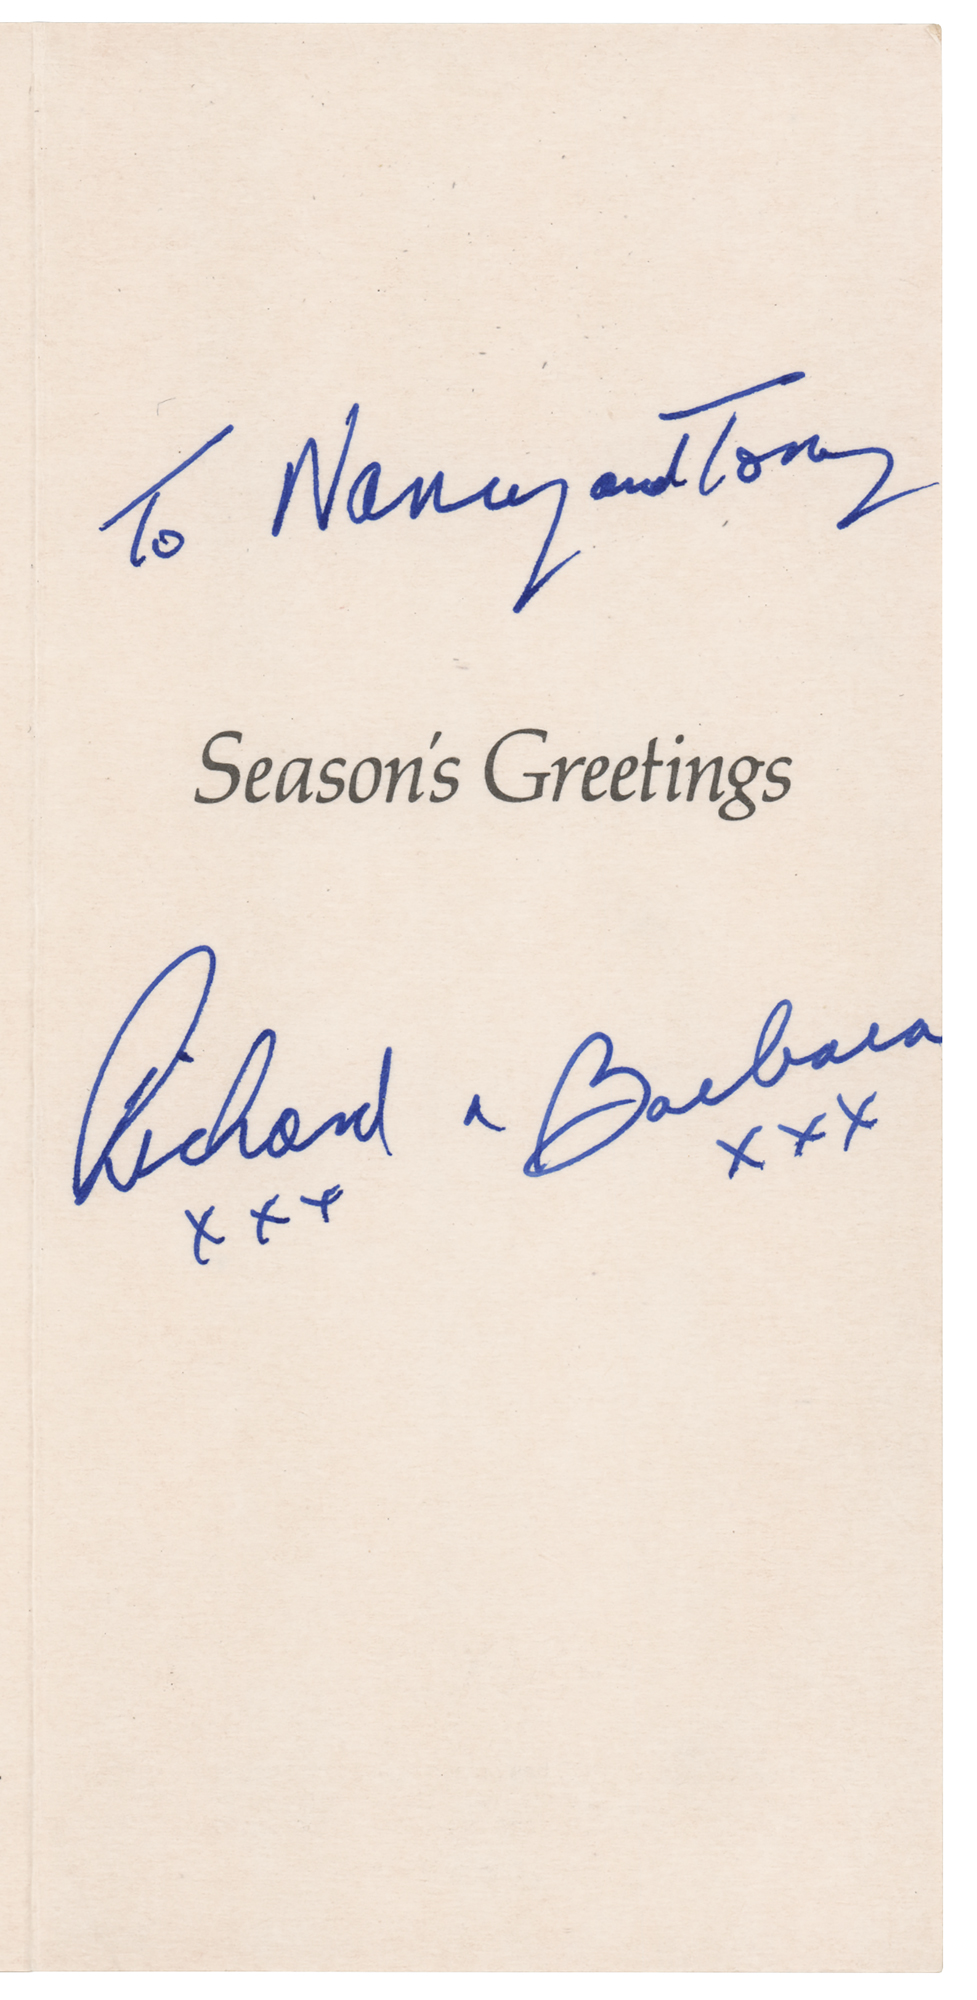 To Nancy and Tony
Season's Greetings
Richard & Barbara
xxx xxx